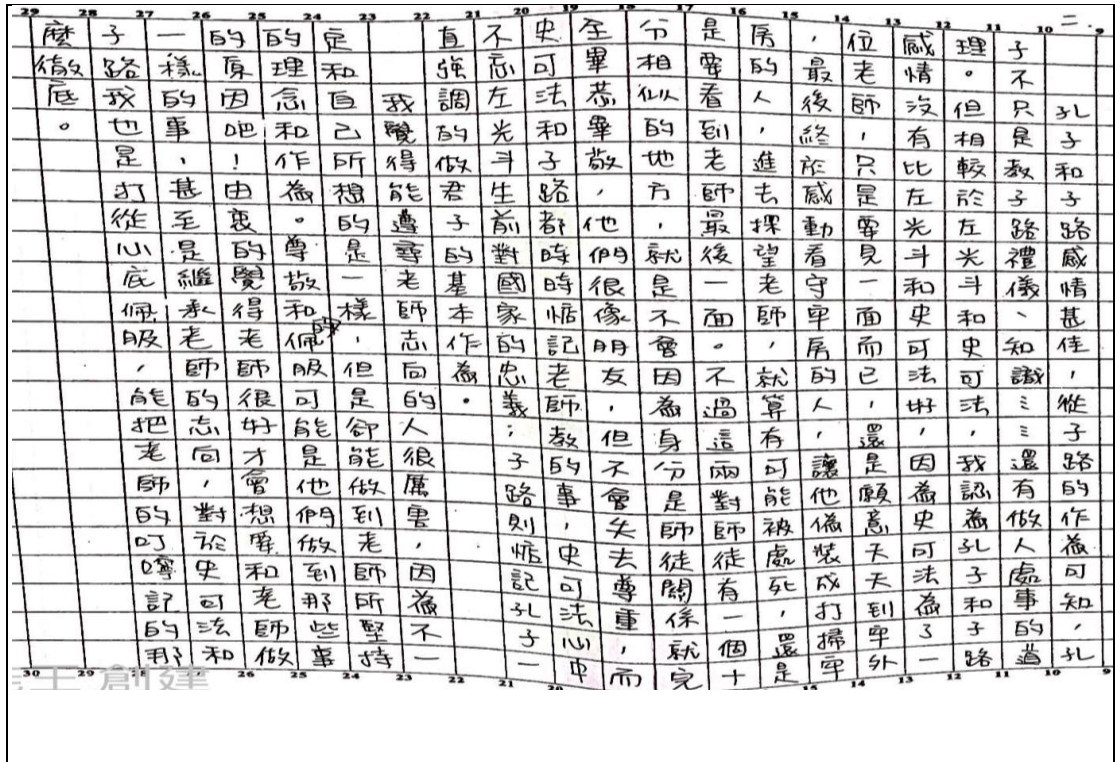 二.
孔子和子路感情甚佳，從子路的作為可知，孔
子不只是教子路禮儀、知識⋮⋮還有做人處事的道
理。但相較於左光斗和史可法，我認為孔子和子路
感情沒有比左光斗和史可法好，因為史可法為了一
位老師，只是要見一面而已，還是願意天天到牢外
，最後終於感動看守牢房的人，讓他偽裝成打掃牢
房的人，進去探望老師，就算有可能被處死，還是
是要看到老師最後一面。不過這兩對師徒有一個十
分相似的地方，就是不會因為身分是師徒關係，就完
至畢恭畢敬，他們很像朋友，但不會失去尊重心，而
史可法和子路都時時惦記老師教的事，史可法心中
不忘左光斗生前對國家的忠義；子路則惦記孔子一
直強調的做君子的基本作為。
我覺得能遵尋老師志向的人很厲害，因為不一
定和自己所想的是一樣，但是卻能做到老師所堅持
的理念和作為。尊敬和佩服可能是他們做到那些事
的原因吧！由衷的覺得老師很好才會想要和老師做
一樣的事，甚至是繼承老師的志向，對於史可法和
子路我也是打從心底佩服，能把老師的叮嚀記的那
麼徹底。